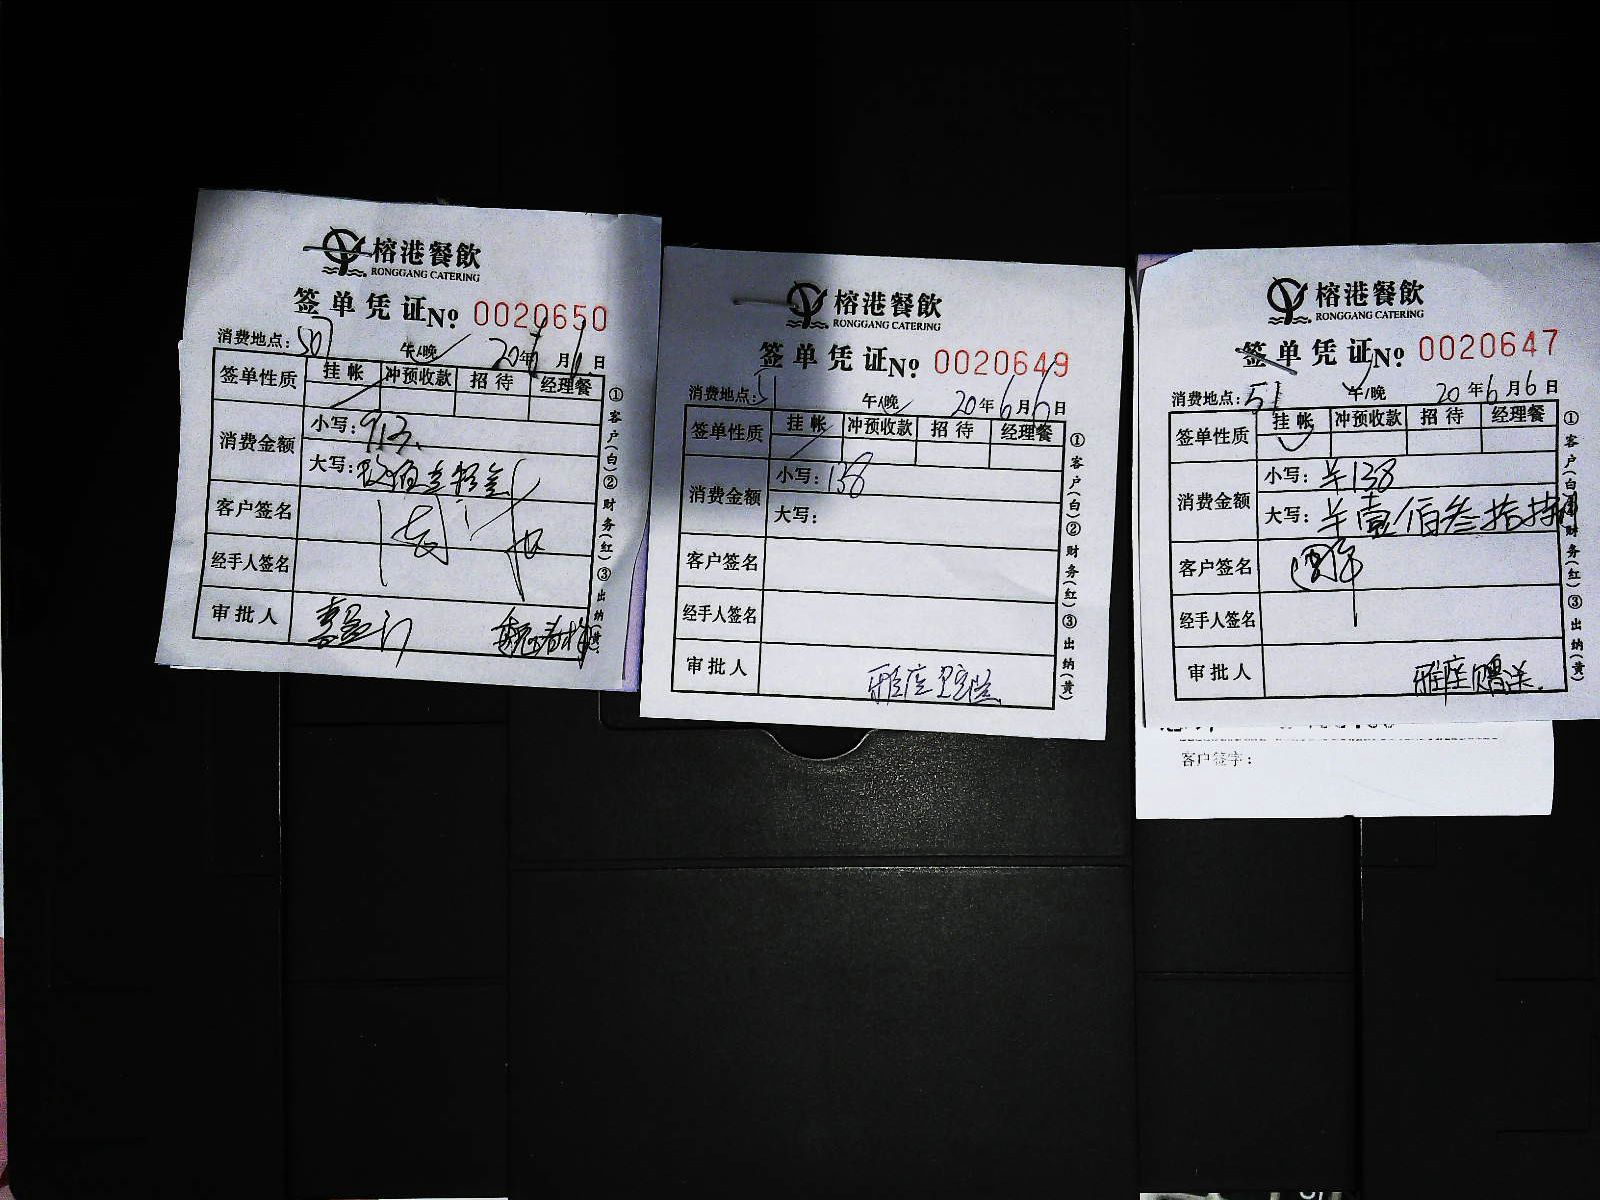 榕港餐飲
RONGGANG CATERING
签单凭证 No. 0020650
消费地点: 507 午/晚 20年 月 日
签单性质 挂帐 冲预收款 招待 经理餐
消费金额 小写: 913
大写:
客户签名
经手人签名
审批人
①客户(白)②财务(红)③出纳(黄)
榕港餐飲
RONGGANG CATERING
签单凭证 No. 0020649
消费地点: 51 午/晚 20年6月6日
签单性质 挂帐 冲预收款 招待 经理餐
消费金额 小写: 138
大写:
客户签名
经手人签名
审批人 雅座赠送
①客户(白)②财务(红)③出纳(黄)
榕港餐飲
RONGGANG CATERING
签单凭证 No. 0020647
消费地点: 51 午/晚 20年6月6日
签单性质 挂帐 冲预收款 招待 经理餐
消费金额 小写: 羊138
大写: 羊壹佰叁拾捌
客户签名
经手人签名
审批人 雅座赠送.
①客户(白)②财务(红)③出纳(黄)
客户签字: